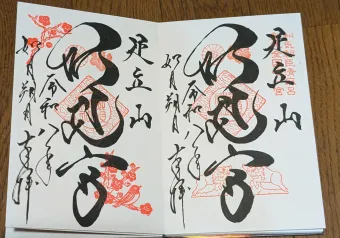 足立山
妙見宮
令和八年
如月朔日
奉拝
足立山
妙見宮
令和八年
如月朔日
奉拝